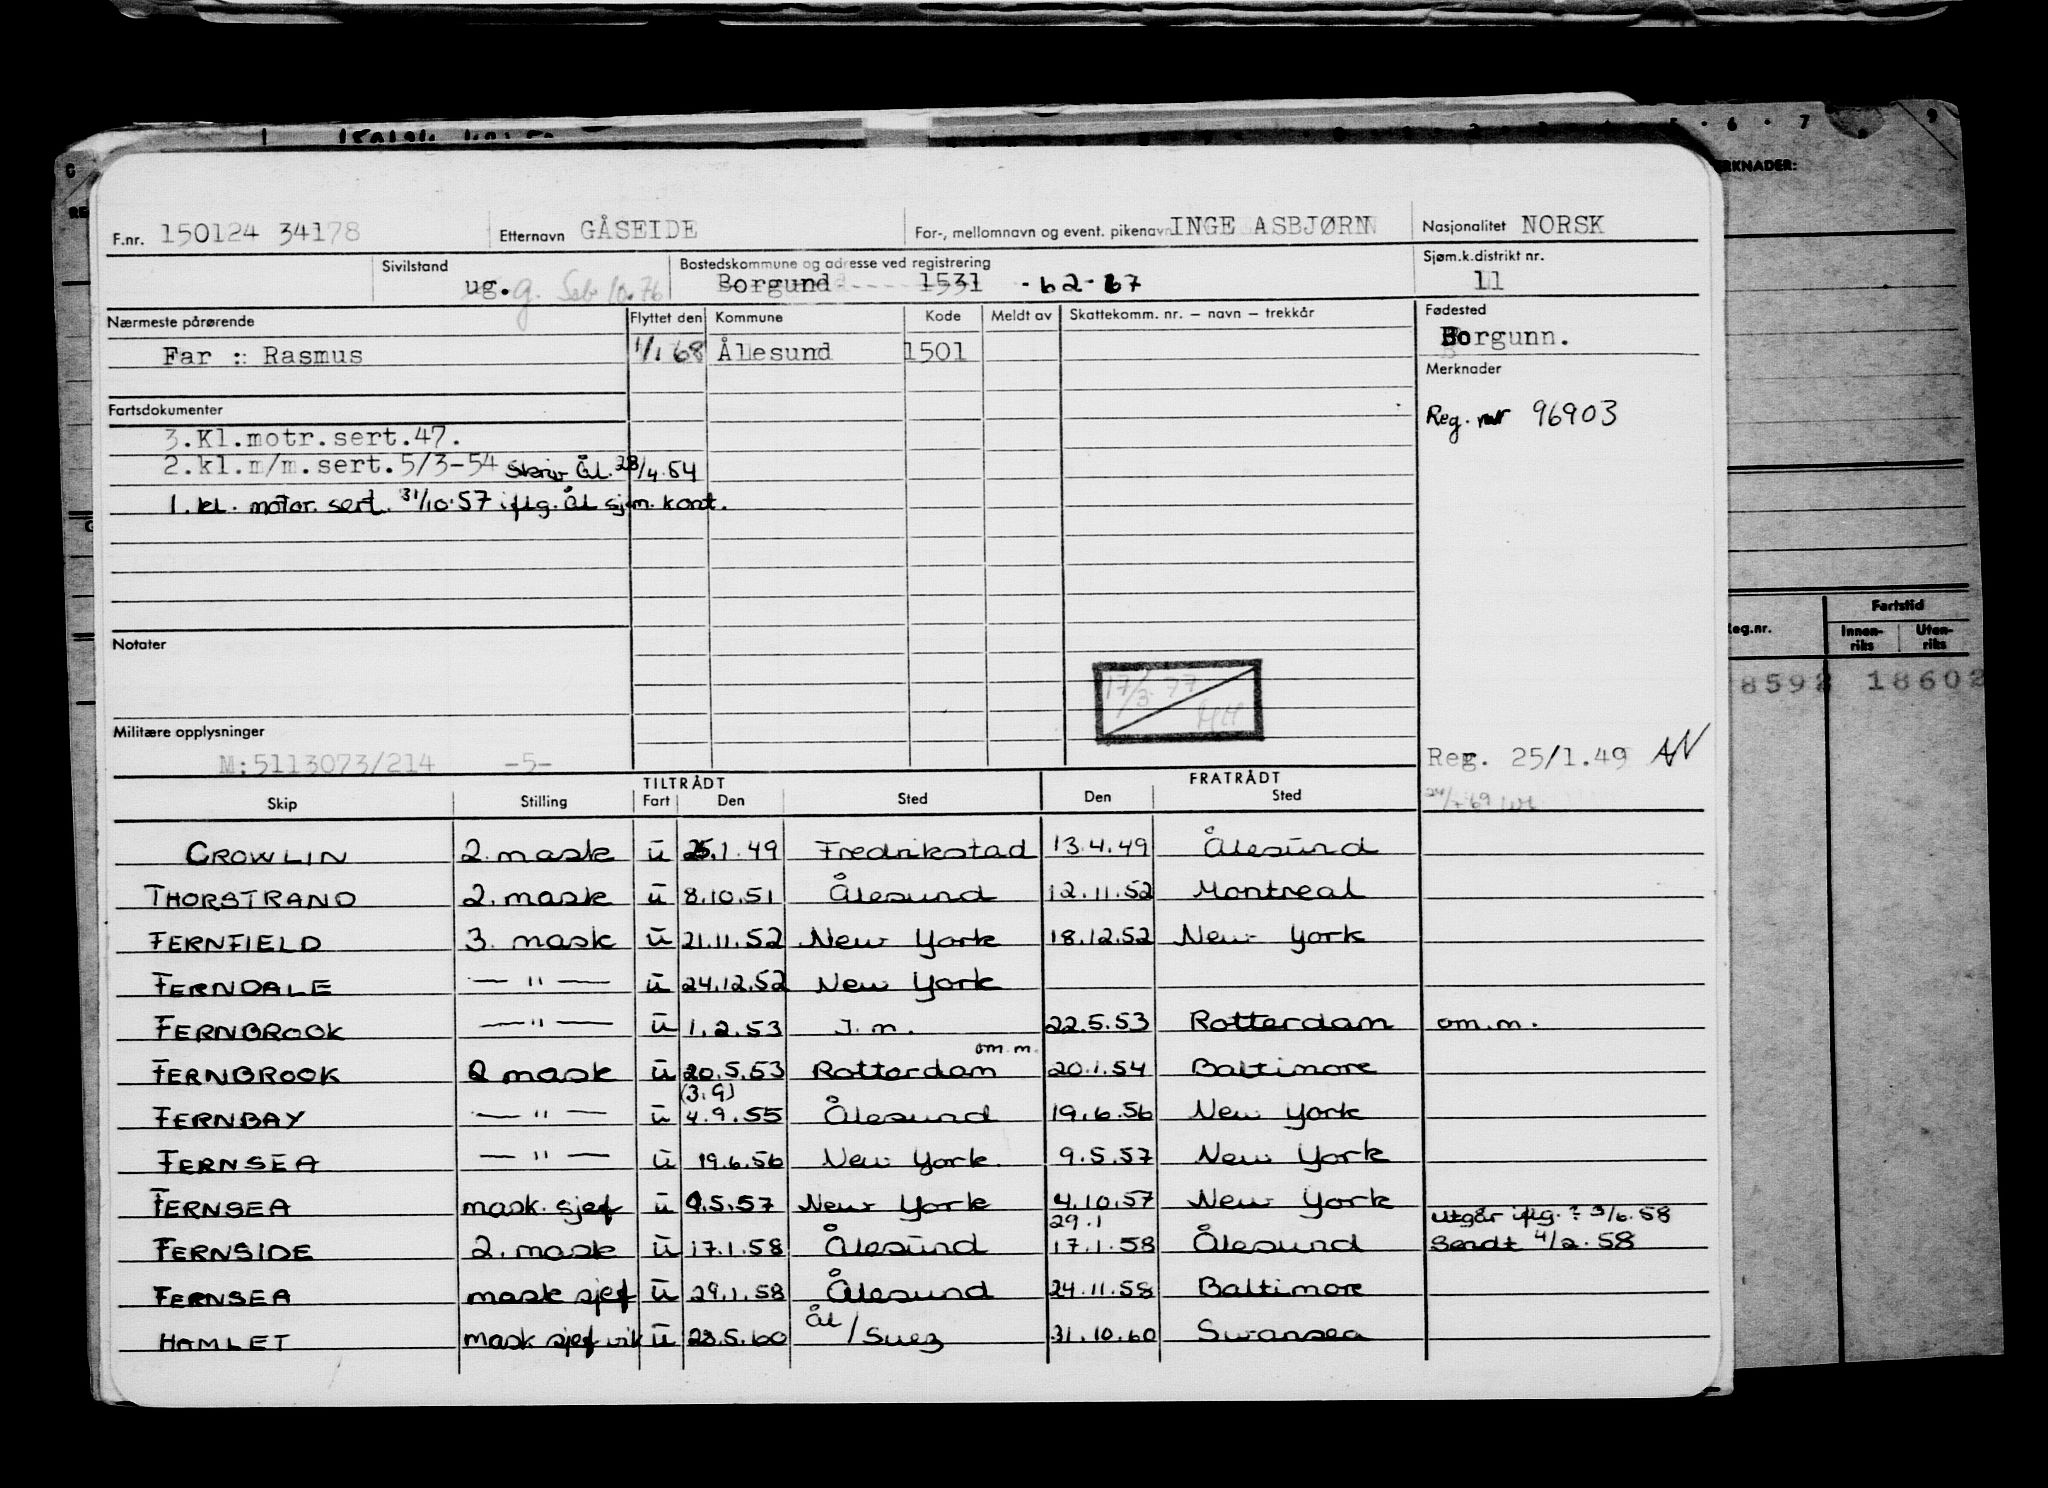 ERKNADER:
F.nr. 150124 34178 Etternavn GÅSEIDE For-, mellomnavn og event. pikenavn INGE ASBJØRN Nasjonalitet NORSK
Sivilstand ug. g. Bostedskommune og adresse ved registrering Borgund 1531 Sjøm.k.distrikt nr. 11
Nærmeste pårørende Flyttet den Kommune Kode Meldt av Skattekomm. nr. – navn – trekkår Fødested
Far : Rasmus 1/1 68 Ålesund 1501 Borgunn.
Merknader
Fartsdokumenter
Reg. nr 96903
3.Kl.motr.sert.47.
2.kl.m/m.sert.5/3-54 Skriv Ål. 28/4.54
1. kl. motor. sert. 31/10.57 iflg. Ål sjøm. kont.
Fartstid
Reg.nr. Innen-riks Uten-riks
Notater
8592 18602
17/3 77
Militære opplysninger
M:5113073/214 -5- Reg. 25/1.49 AN
TILTRÅDT FRATRÅDT
Skip Stilling Fart Den Sted Den Sted
CROWLIN 2. mask u 25.1.49 Fredrikstad 13.4.49 Ålesund
THORSTRAND 2. mask u 8.10.51 Ålesund 12.11.52 Montreal
FERNFIELD 3. mask u 21.11.52 New York 18.12.52 New York
FERNDALE — " — u 24.12.52 New York
FERNBROOK — " — u 1.2.53 J.m. 22.5.53 Rotterdam om.m.
om.m.
FERNBROOK 2 mask u 20.5.53 Rotterdam 20.1.54 Baltimore
(3.9)
FERNBAY — " — u 4.9.55 Ålesund 19.6.56 New York
FERNSEA — " — u 19.6.56 New York 9.5.57 New York
FERNSEA mask. sjef u 9.5.57 New York 4.10.57 New York
29.1 Utgår iflg. ? 3/6.58
FERNSIDE 2. mask u 17.1.58 Ålesund 17.1.58 Ålesund Sendt 4/2.58
FERNSEA mask sjef u 29.1.58 Ålesund 24.11.58 Baltimore
HAMLET mask sjef vik u 28.5.60 Ål/Suez 31.10.60 Swansea